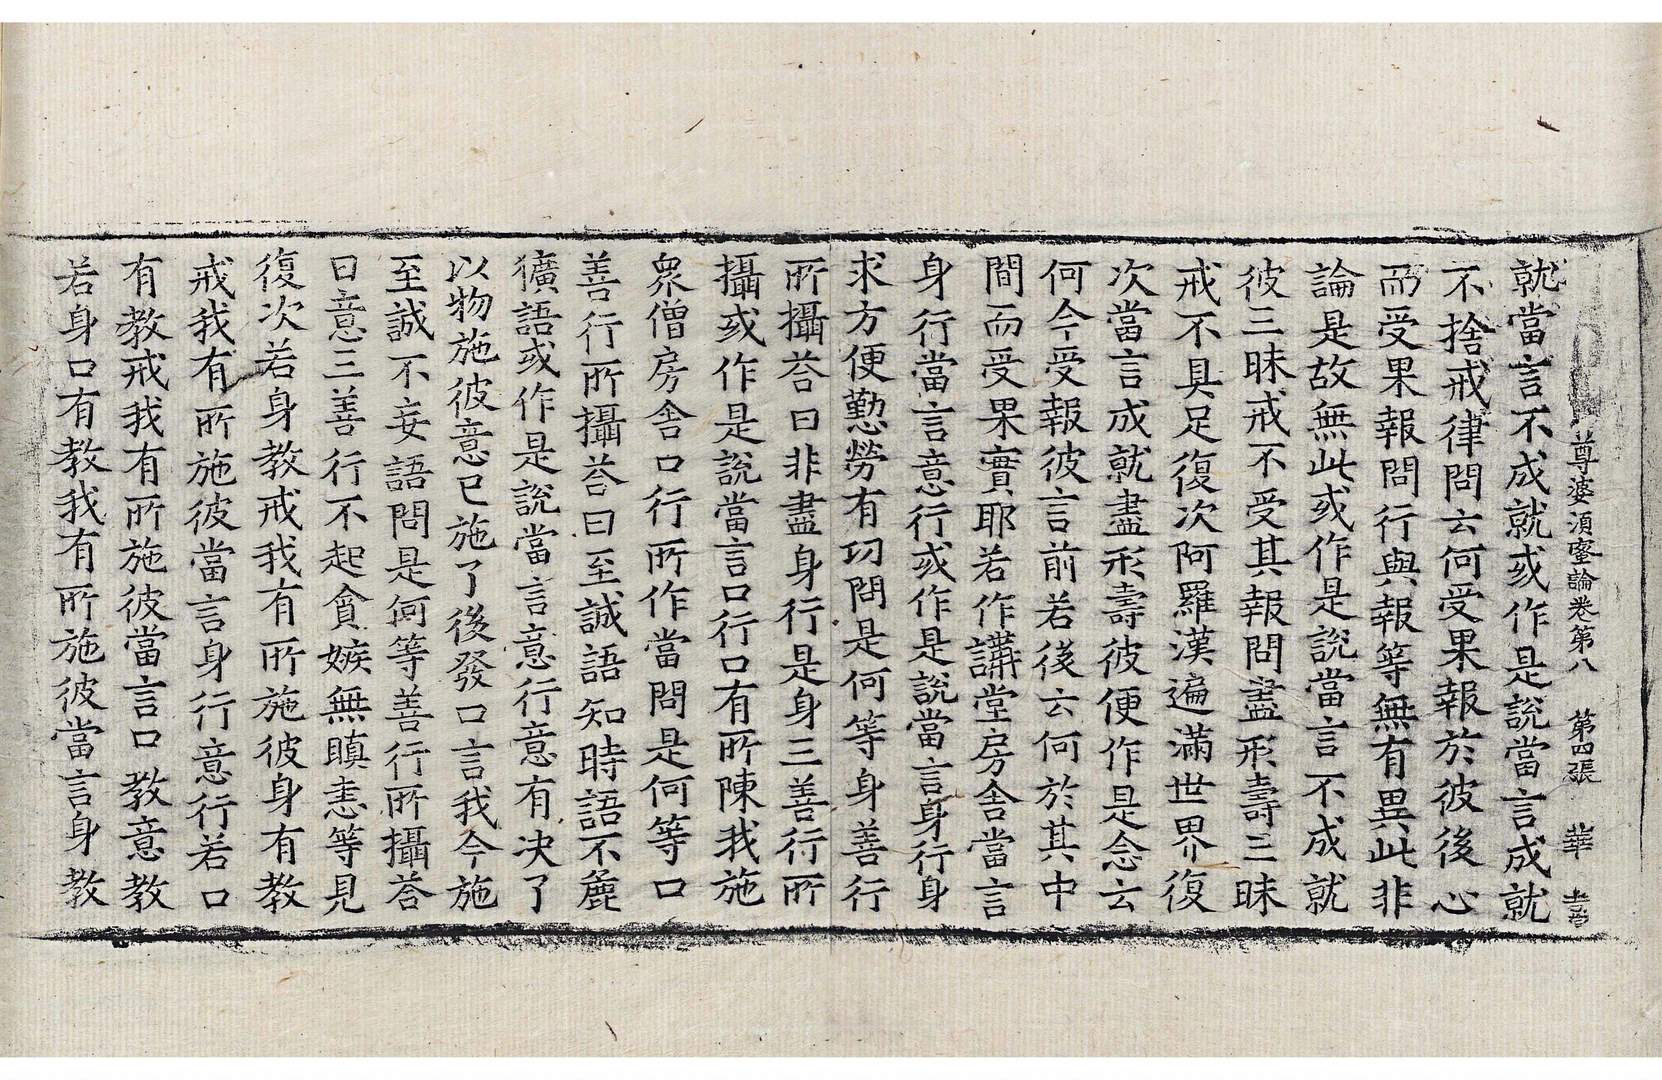 尊婆須蜜論卷第八　第四張　華
就當言不成就或作是說當言成就
不捨戒律問云何受果報於彼後心
而受果報問行與報等無有異此非
論是故無此或作是說當言不成就
彼三昧戒不受其報問盡形壽三昧
戒不具足復次阿羅漢遍滿世界復
次當言成就盡形壽彼便作是念云
何今受報彼言前若後云何於其中
間而受果實耶若作講堂房舍當言
身行當言意行或作是說當言身行身
求方便懃勞有功問是何等身善行
所攝荅曰非盡身行是身三善行所
攝或作是說當言口行口有所陳我施
眾僧房舍口行所作當問是何等口
善行所攝荅曰至誠語知時語不麁
獷語或作是說當言意行意有決了
以物施彼意已施了後發口言我今施
至誠不妄語問是何等善行所攝荅
曰意三善行不起貪嫉無瞋恚等見
復次若身教戒我有所施彼身有教
戒我有所施彼當言身行意行若口
有教戒我有所施彼當言口教意教
若身口有教我有所施彼當言身教